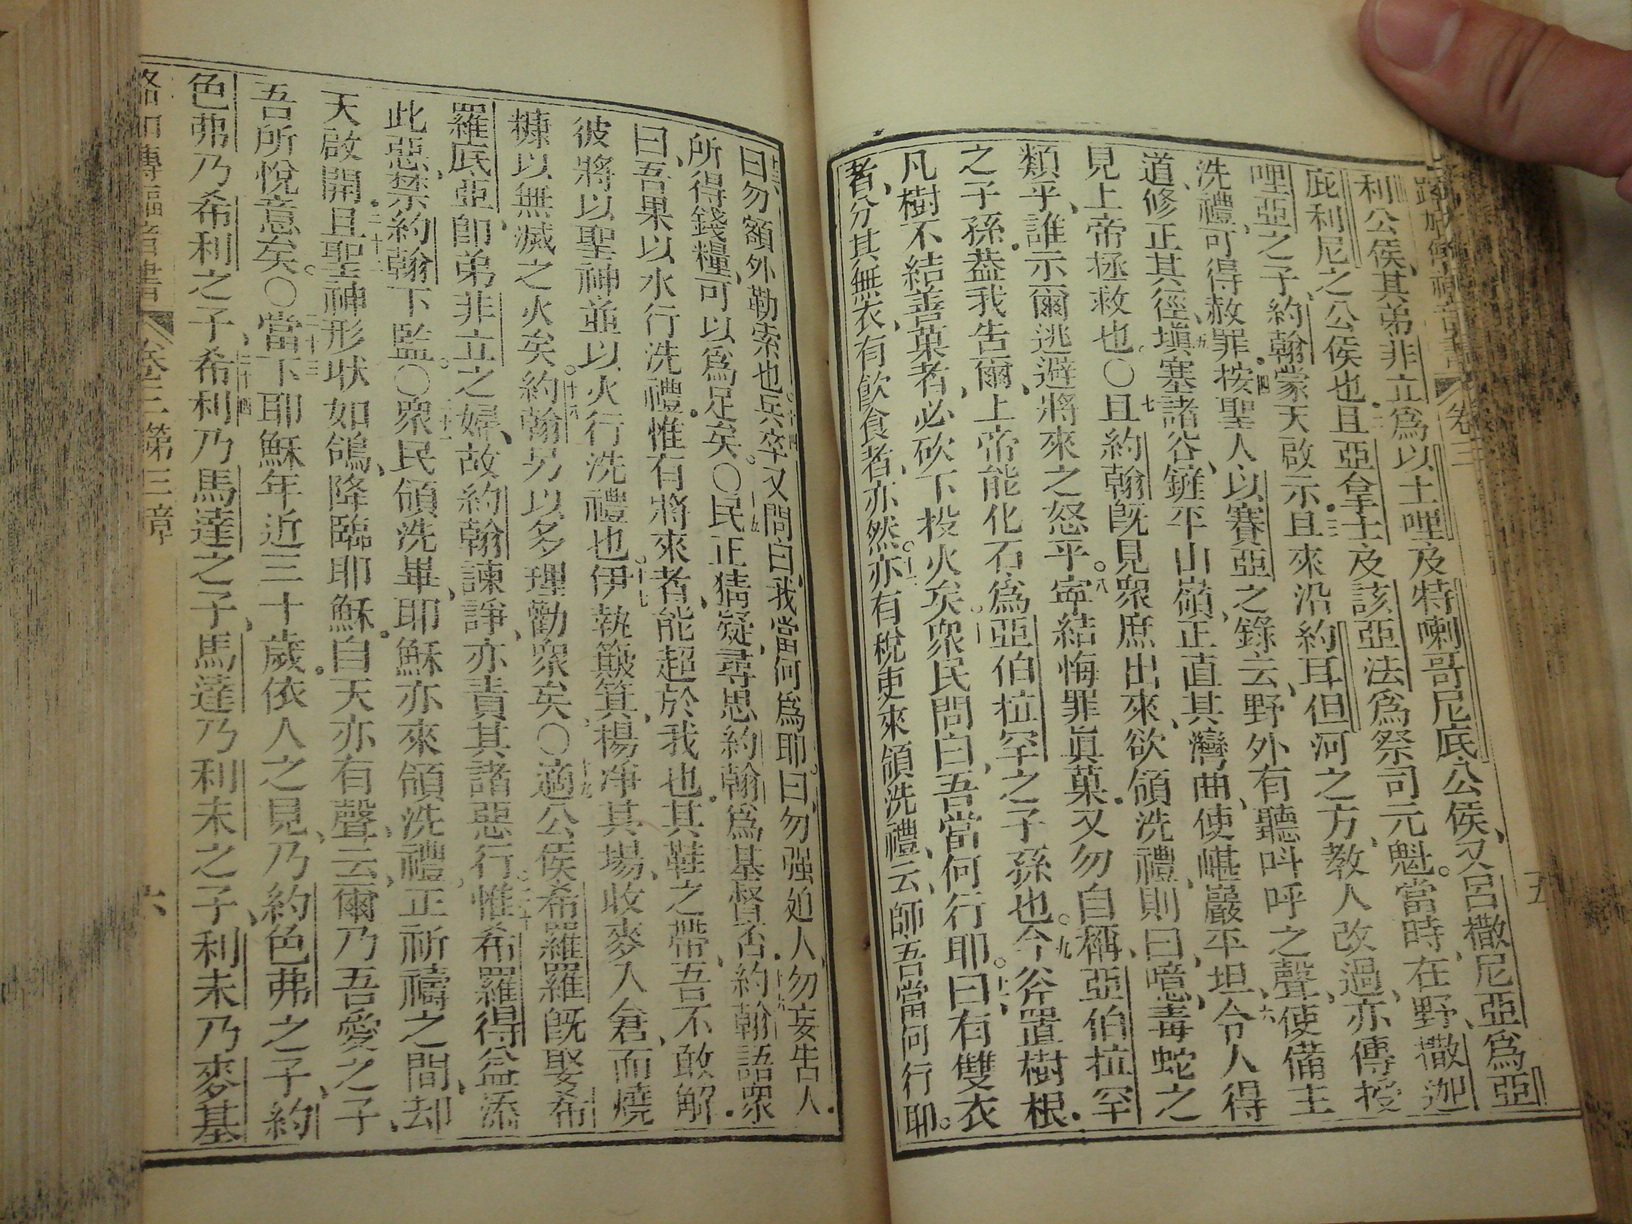 路加傳福音書 卷三 五
利公侯、其弟非立爲以土哩及特喇哥尼底公侯、又呂撒尼亞爲亞
庇利尼之公侯也、且亞拿士及該亞法爲祭司元魁。當時在野、撒迦
哩亞之子、約翰蒙天啟示、三且來沿約耳但河之方、教人改過、亦傳授
洗禮、可得赦罪、四按聖人以賽亞之錄云、野外有聽呌呼之聲、使備主
道、修正其徑、五塡塞諸谷、鏟平山嶺、正直其灣曲、使嵁巖平坦、六令人得
見上帝拯救也○七且約翰旣見衆庶出來、欲領洗禮、則曰、噫毒蛇之
類乎、誰示爾逃避將來之怒乎。八寜結悔罪眞菓、又勿自稱、亞伯拉罕
之子孫、葢我告爾、上帝能化石爲亞伯拉罕之子孫也。九今斧置樹根、
凡樹不結善菓者、必砍下投火矣、十衆民問曰、吾當何行耶。十一曰有雙衣
者、分其無衣、有飮食者、亦然。十二亦有稅吏來領洗禮、云、師吾當何行耶。
曰勿額外勒索也、十四兵卒又問曰、我當何爲耶、曰、勿强迫人、勿妄告人、
所得錢糧、可以爲足矣。○十五民正猜疑尋思、約翰爲基督否、十六約翰語衆
曰、吾果以水行洗禮、惟有將來者、能超於我也、其鞋之帶、吾不敢解、
彼將以聖神並以火行洗禮也、十七伊執簸箕、楊凈其場、收麥入倉、而燒
糠以無滅之火矣。十八約翰另以多理勸衆矣○十九適公侯希羅羅旣娶希
羅底亞、卽弟非立之婦、故約翰諫諍、亦責其諸惡行、二十惟希羅得益添
此惡、禁約翰下監。○二十一衆民領洗畢、耶穌亦來領洗禮、正祈禱之間、却
天啟開、二十二且聖神形狀如鴿、降臨耶穌、自天亦有聲云、爾乃吾愛之子、
吾所悅意矣。○二十三當下耶穌年近三十歲、依人之見、乃約色弗之子、約
色弗乃希利之子、二十四希利乃馬達之子、馬達乃利未之子、利未乃麥基
路加傳福音書 卷三第三章 六